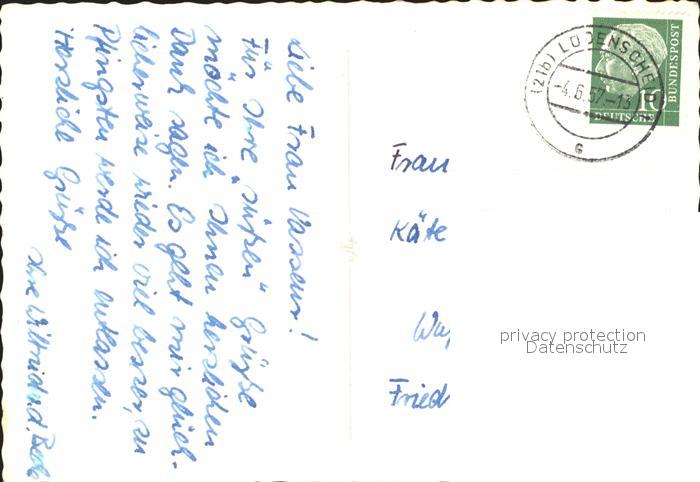 Liebe Frau Vassen!
Für Ihre "süßen" Grüße
möchte ich Ihnen herzlichen
Dank sagen. Es geht mir glück-
licherweise wieder viel besser, zu
Pfingsten werde ich entlassen.
Herzliche Grüße
Ihre
Frau
Käte
Fried
(21b) LÜDENSCHEID
-4.6.57.-13
c
10
DEUTSCHE
BUNDESPOST
privacy protection
Datenschutz